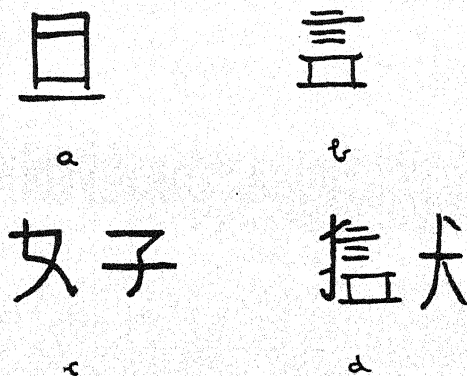 旦 言
a b
女子 犬
c d